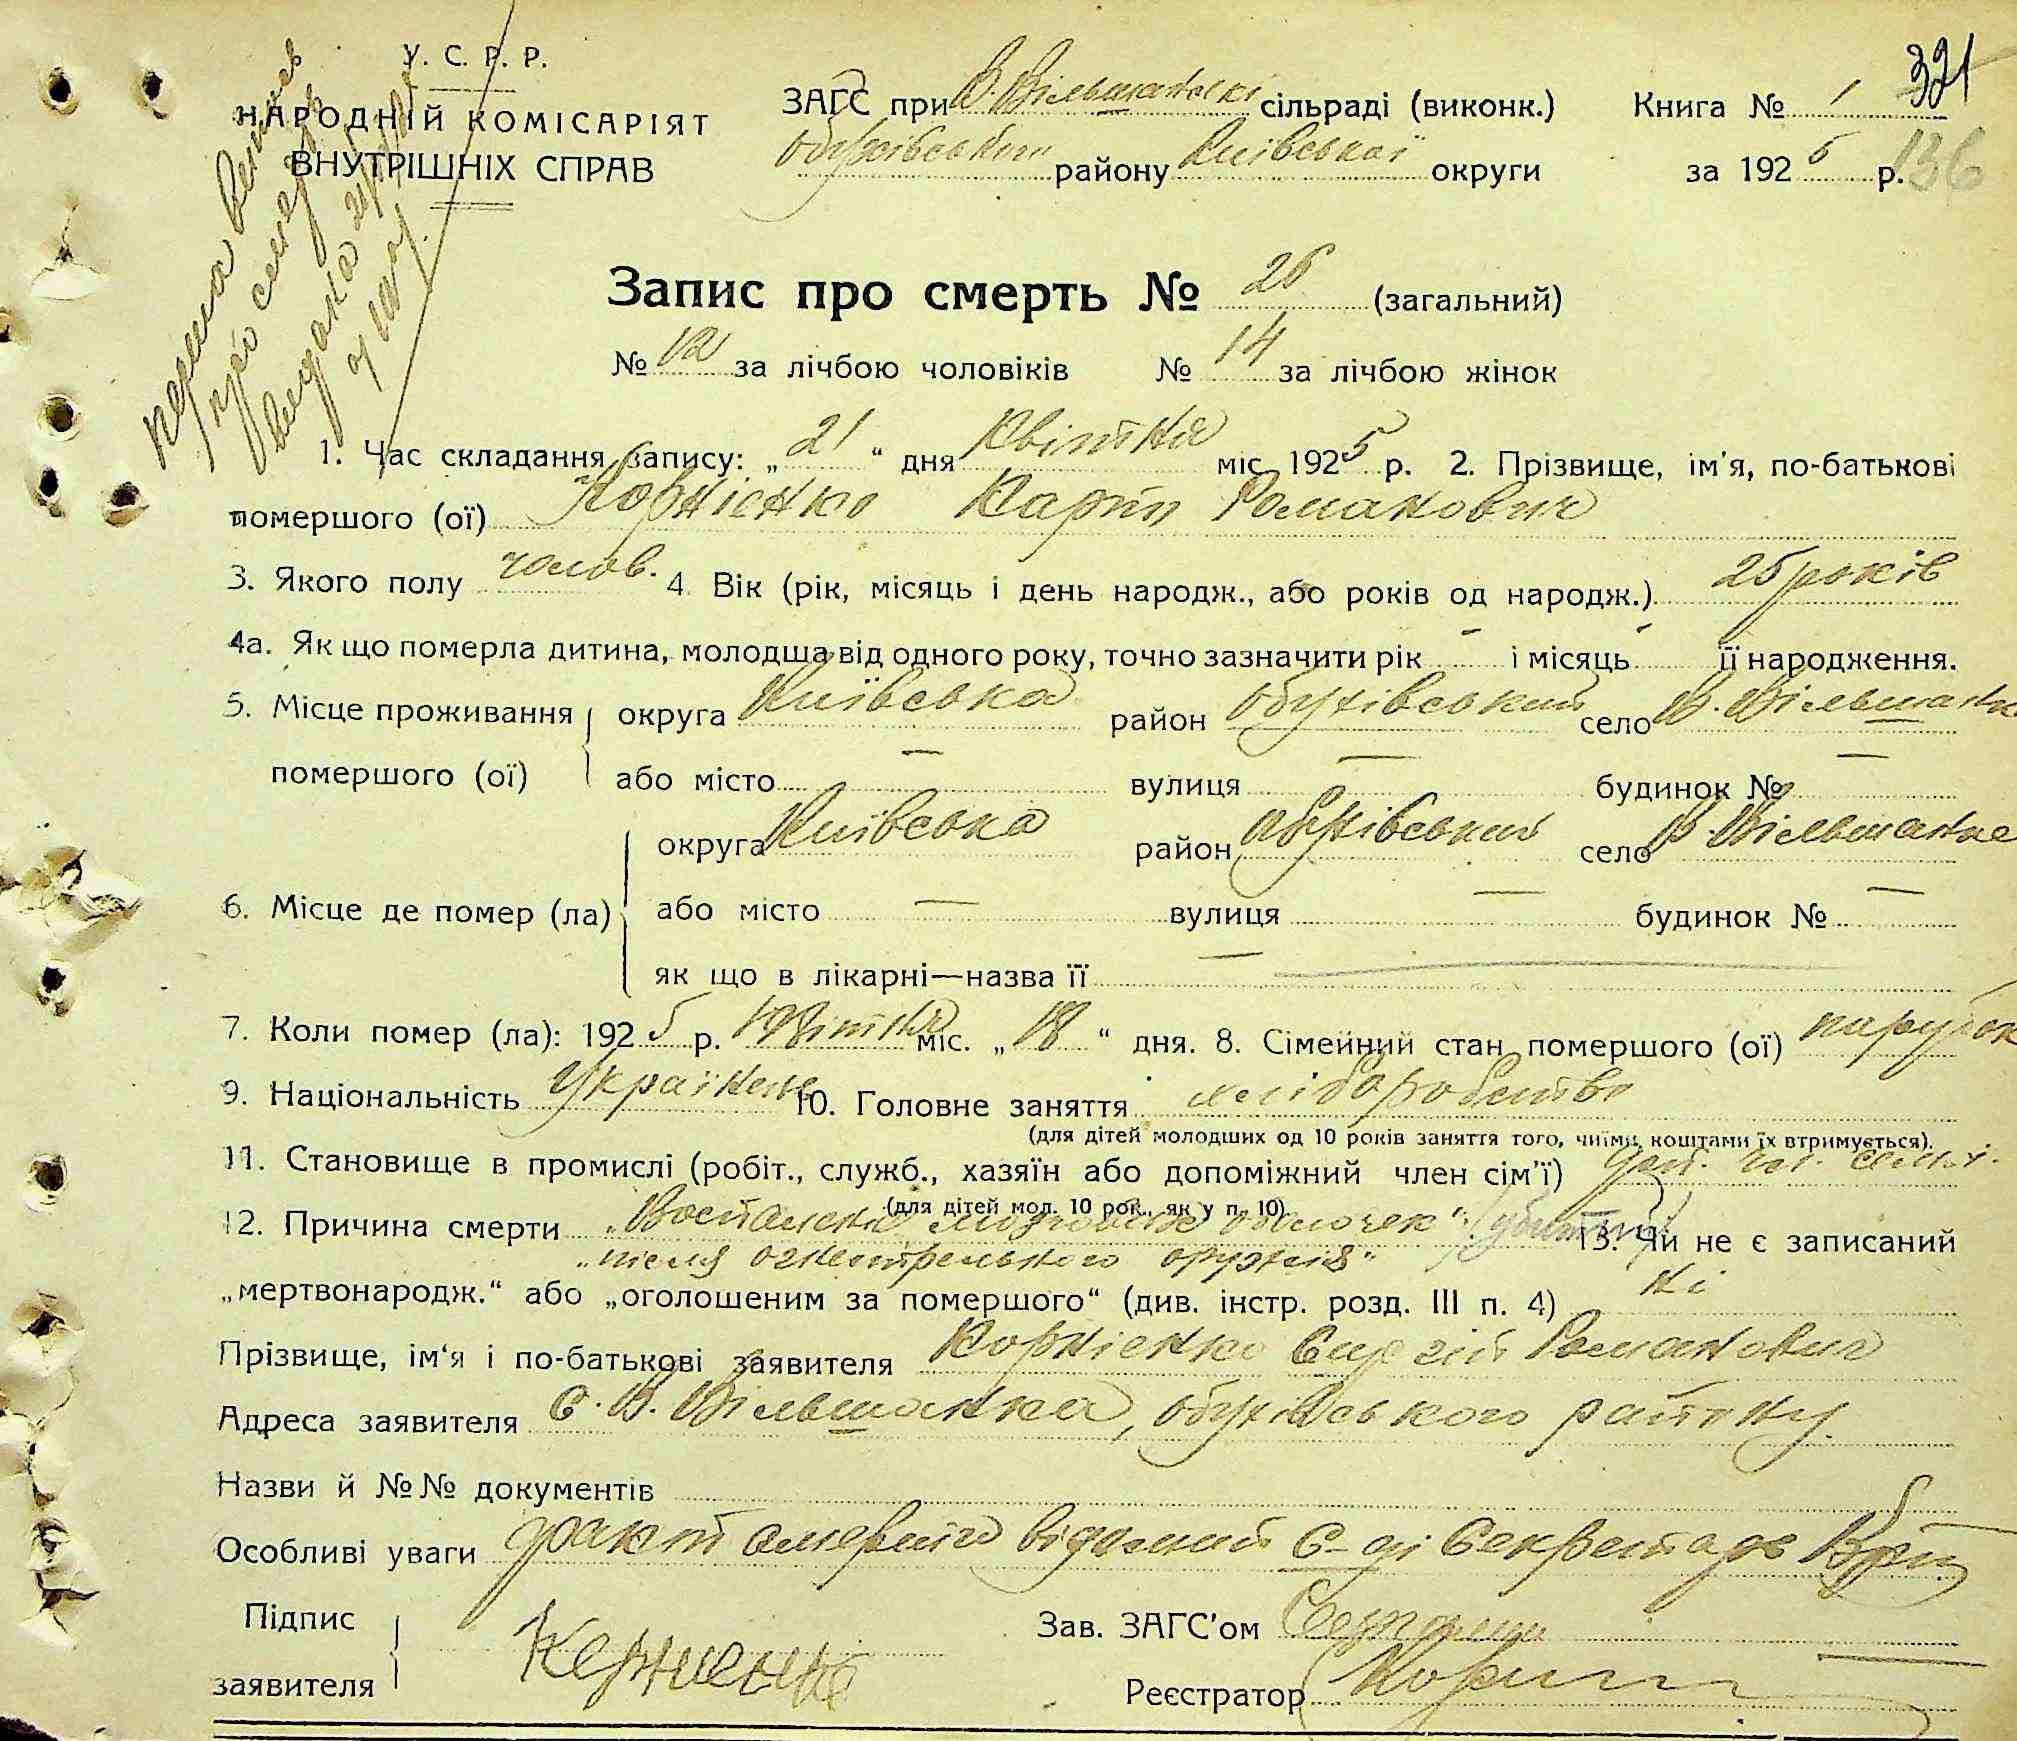 У. С. Р. Р.
НАРОДНІЙ КОМІСАРІЯТ
ВНУТРІШНІХ СПРАВ
ЗАГС при В. Вільшанській сільраді (виконк.)
Обухівського району Київської округи
Книга № 1
за 1925 р.
321
136
Запис про смерть № 26 (загальний)
№ 12 за лічбою чоловіків № 14 за лічбою жінок
1. Час складання запису: „21“ дня Квітня міс. 1925 р. 2. Прізвище, ім'я, по-батькові
помершого (ої) Корнієнко Карпо Романович
3. Якого полу чолов. 4. Вік (рік, місяць і день народж., або років од народж.) 25 років
4а. Як що померла дитина, молодша від одного року, точно зазначити рік - і місяць - її народження.
5. Місце проживання округа Київська район Обухівський село В. Вільшанка
помершого (ої) або місто — вулиця — будинок № —
округа Київська район Обухівський село В. Вільшанка
6. Місце де помер (ла) або місто — вулиця — будинок № —
як що в лікарні—назва її —
7. Коли помер (ла): 1925 р. Квітня міс. „18“ дня. 8. Сімейний стан помершого (ої) парубок
9. Національність Українець 10. Головне заняття хліборобство
(для дітей молодших од 10 років заняття того, чиїми коштами їх втримується).
11. Становище в промислі (робіт., служб., хазяїн або допоміжний член сім'ї) доп. чл. сем'ї.
(для дітей мол. 10 рок., як у п. 10)
12. Причина смерти оболочек" (убитий) 13. Чи не є записаний
"після огнестрельного оружия"
„мертвонародж.“ або „оголошеним за помершого“ (див. інстр. розд. III п. 4) Ні
Прізвище, ім'я і по-батькові заявителя Корнієнко Сергій Романович
Адреса заявителя С. В. Вільшанка, Обухівського району.
Назви й №№ документів
Особливі уваги факт смерти відомий Секретарь
Підпис
заявителя Корниенко
Зав. ЗАГС'ом
Реєстратор